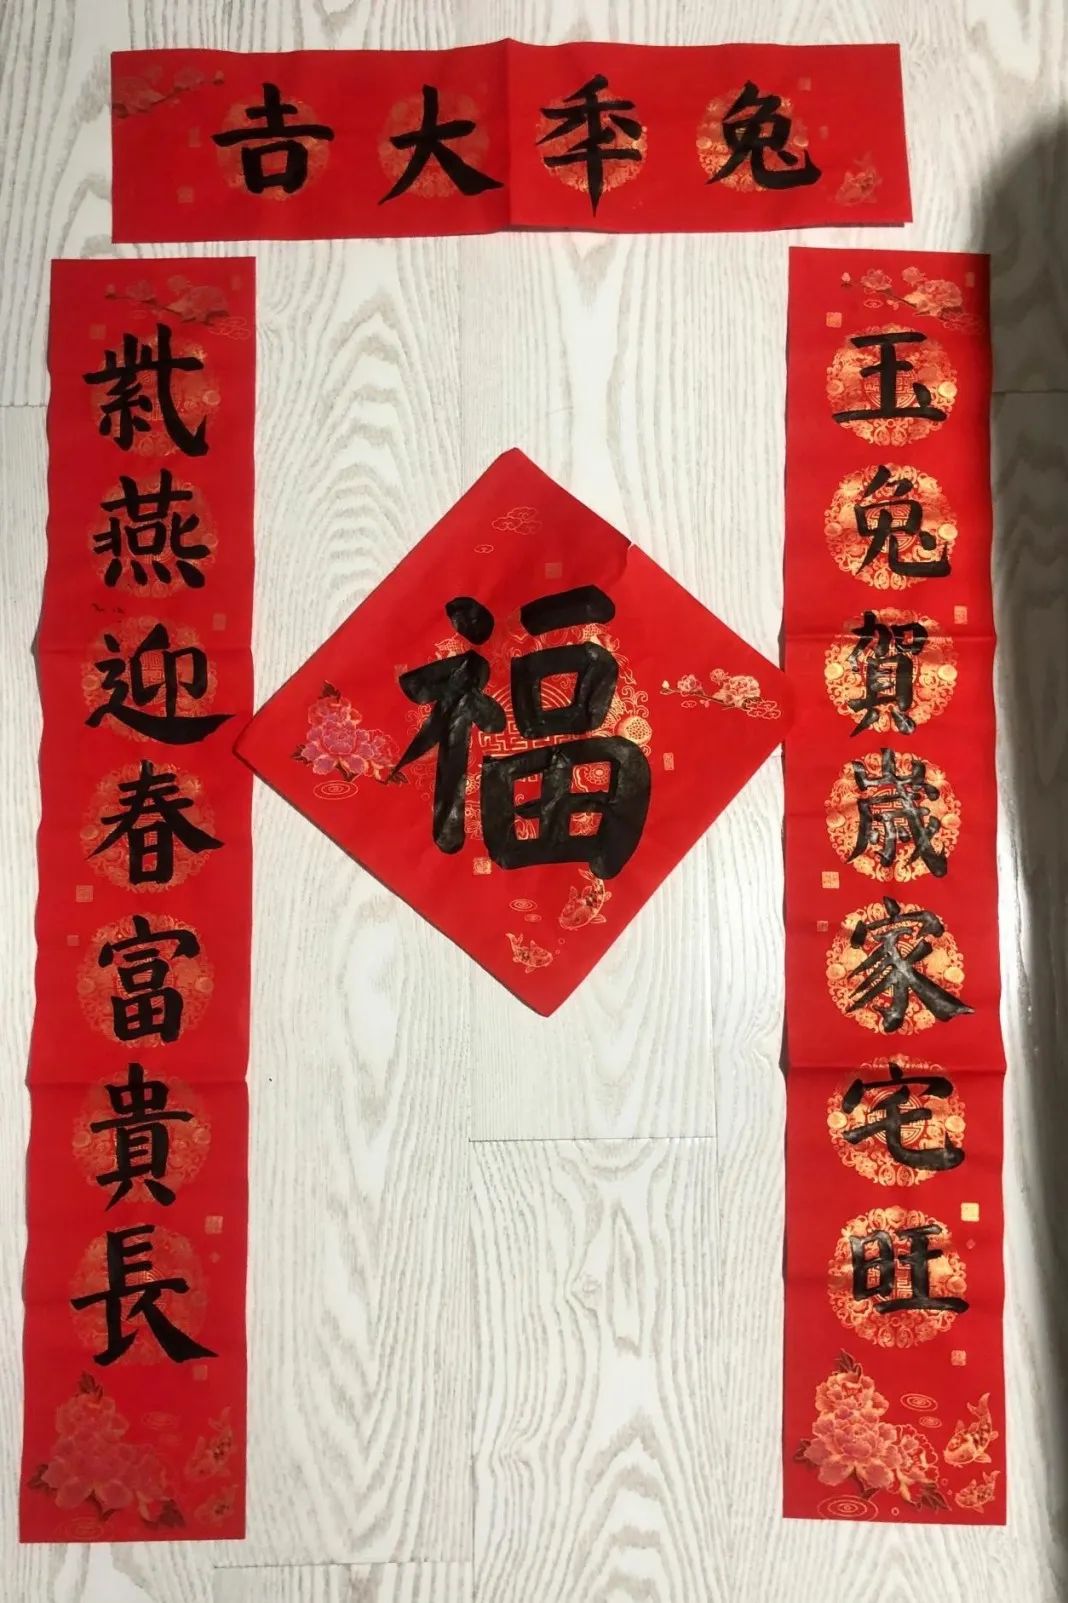 兔秊大吉
玉兔賀歲家宅旺
紫燕迎春富貴長
福